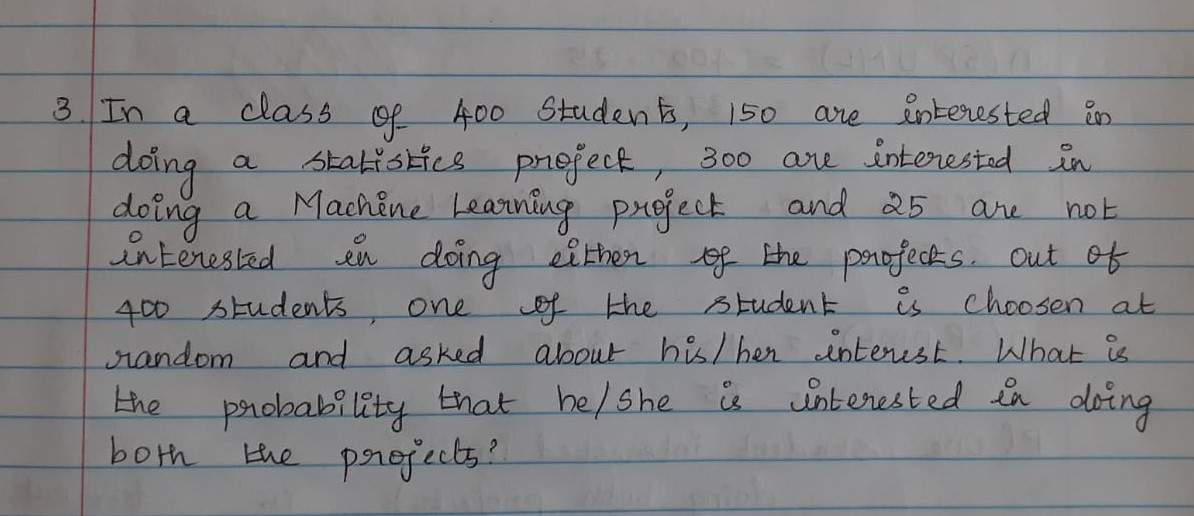 3. In a class of 400 Students, 150 are interested in
doing a statistics project, 300 are interested in
doing a Machine Learning project and 25 are not
interested in doing either of the projects. Out of
400 students, one of the student is choosen at
random and asked about his/her interest. What is
the probability that he/she is interested in doing
both the projects?